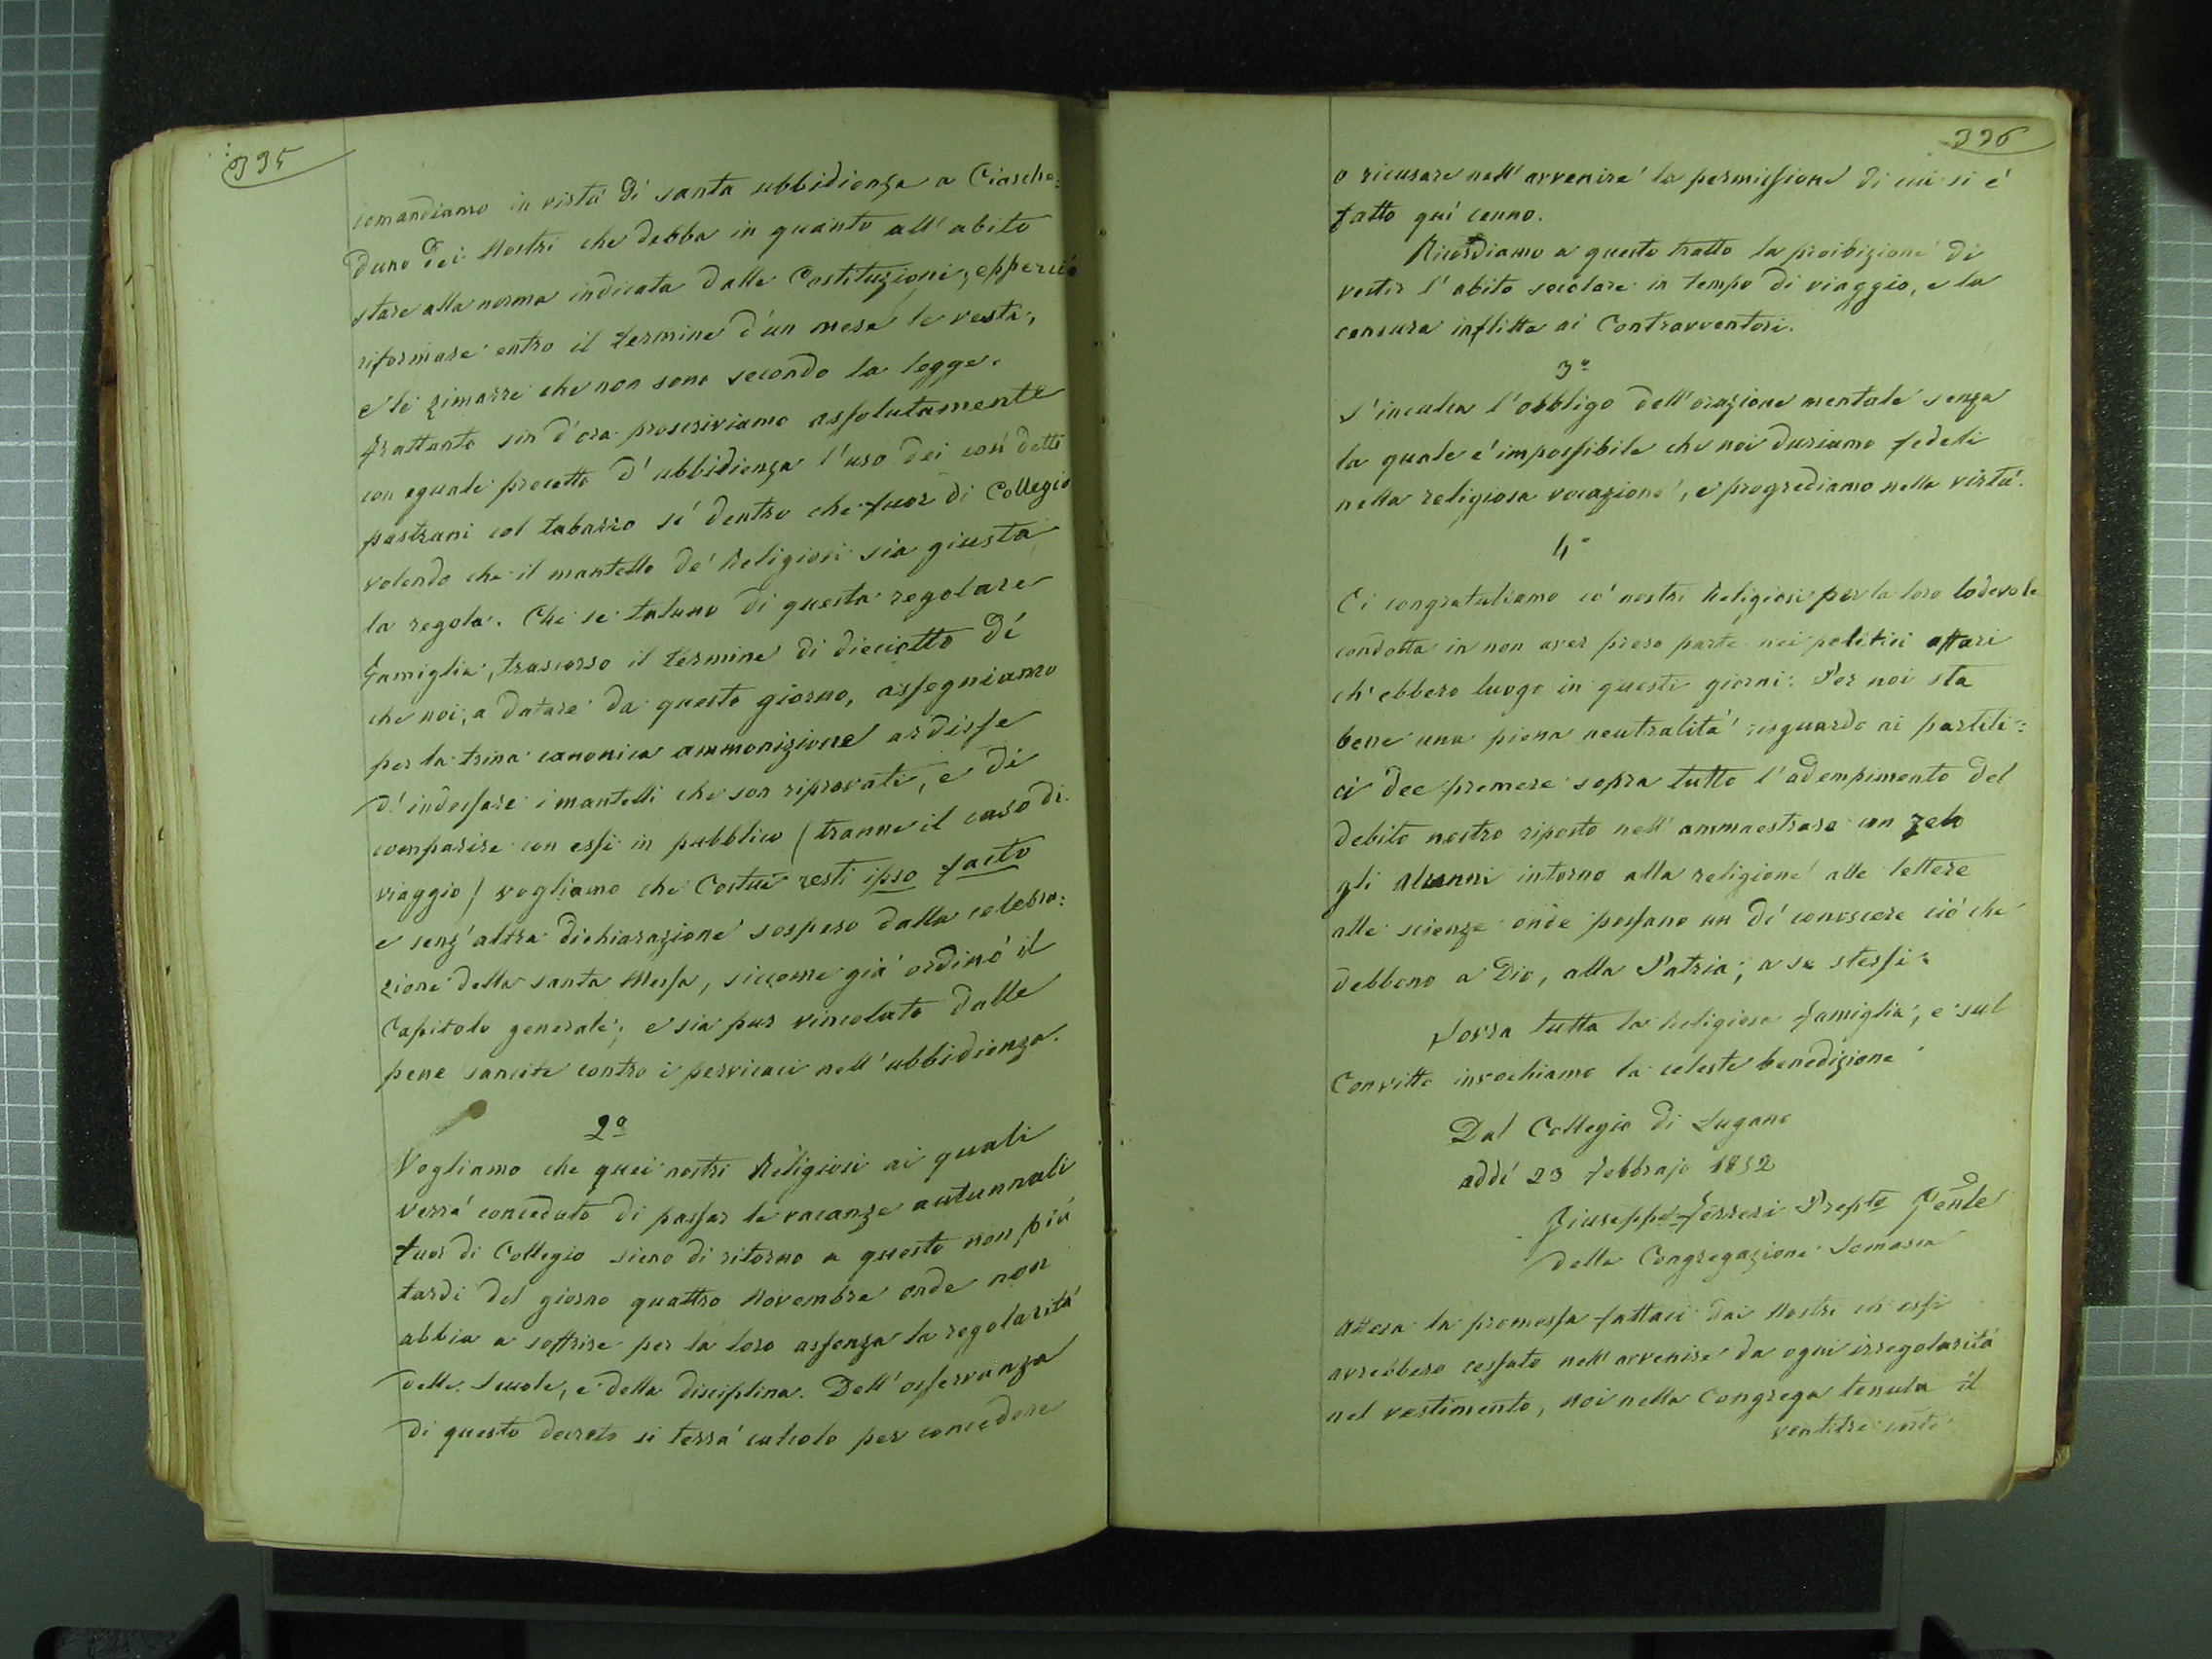 395
comandiamo in virtú di santa ubbidienza a Ciasche:
duno dei Nostri che debba in quanto all'abito
stare alla norma indicata dalle Costituzioni; epperció
riformare entro il termine d'un mese le vesti,
e le zimarre che non sono secondo la legge.
Frattanto sin d'ora proscriviamo assolutamente
con eguale precetto d'ubbidienza l'uso dei cosí detti
pastrani col tabarro sí dentro che fuor di Collegio
volendo che il mantello de' Religiosi sia giusta
la regola. Che se taluno di questa regolare
famiglia, trascorso il termine di dieciotto dí
che noi, a datare da questo giorno, assegniamo
per la trina canonica ammonizione ardisse
d'indossare i mantelli che son riprovati, e di
comparire con essi in pubblico (tranne il caso di
viaggio) vogliamo che Costui resti ipso facto
e senz'altra dichiarazione sospeso dalla celebra:
zione della santa Messa, siccome giá ordinó il
Capitolo generale; e sia pur vincolato dalle
pene sancite contro i pervicaci nell'ubbidienza.
2º
Vogliamo che quei nostri Religiosi ai quali
verrá conceduto di passar le vacanze autunnali
fuor di Collegio sieno di ritorno a questo non piú
tardi del giorno quattro Novembre onde non
abbia a soffrire per la loro assenza la regolaritá
delle Scuole, e della disciplina. Dell'osservanza
di questo decreto si terrá calcolo per concedere
396
o ricusare nell'avvenire la permissione di cui si é
fatto quí cenno.
Ricordiamo a questo tratto la proibizione di
vestir l'abito secolare in tempo di viaggio, e la
censura inflitta ai Contravventori.
3º
S'inculca l'obbligo dell'orazione mentale senza
la quale é impossibile che noi duriamo fedeli
nella religiosa vocazione, e progrediamo nella virtú.
4º
Ci congratuliamo co' nostri Religiosi per la loro lodevole
condotta in non aver preso parte nei politici affari
ch'ebbero luogo in questi giorni. Per noi sta
bene una piena neutralitá risguardo ai partiti:
ci dee premere sopra tutto l'adempimento del
debito nostro riposto nell'ammaestrare con zelo
gli alunni intorno alla religione alle lettere
alle scienze onde possano un dí conoscere ció che
debbono a Dio, alla Patria, a se stessi.
Sovra tutta la Religiosa famiglia, e sul
Convitto invochiamo la celeste benedizione
Dal Collegio di Lugano
addí 23 Febbrajo 1852
Giuseppe Ferreri Prepto Genle
della Congregazione Somasca
Attesa la promessa fattaci dai Nostri ch'essi
avrebbero cessato nell'avvenire da ogni irregolaritá
nel vestimento, Noi nella Congrega tenuta il
ventitre